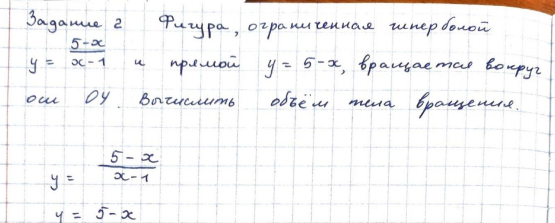 Задание 2 Фигура, ограниченная гиперболой
y = \frac{5-x}{x-1} и прямой y = 5-x, вращается вокруг
оси OY. Вычислить объём тела вращения.
y = \frac{5-x}{x-1}
y = 5-x